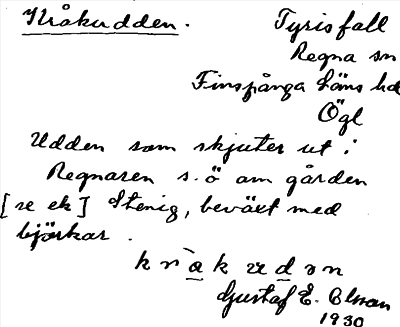 Kråkudden. Tyrisfall
Regna sn
Finspånga läns hd
Ögl
Udden som skjuter ut i
Regnaren s.ö om gården
[se ek] Stenig, beväxt med
björkar.
kràkudən
Gustaf E. Olsson
1930